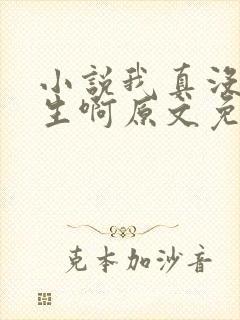 小说我真没
生啊原文免
克本加沙音